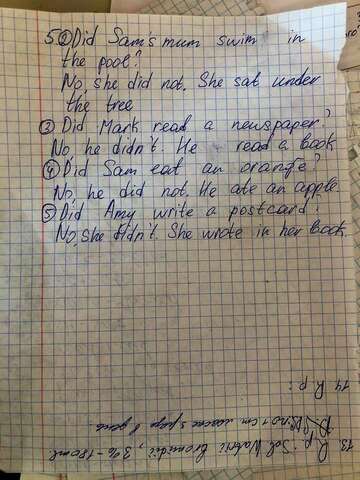 5. ② Did Sam's mum swim in
the pool?
No, she did not. She sat under
the tree
③ Did Mark read a newspaper?
No, he didn't. He read a book
④ Did Sam eat an orange?
No, he did not. He ate an apple.
⑤ Did Amy write a postcard?
No, she didn't. She wrote in her book.
14 Rp:
13. Rp: Sol. Natrii bromidi, 3% - 180 ml